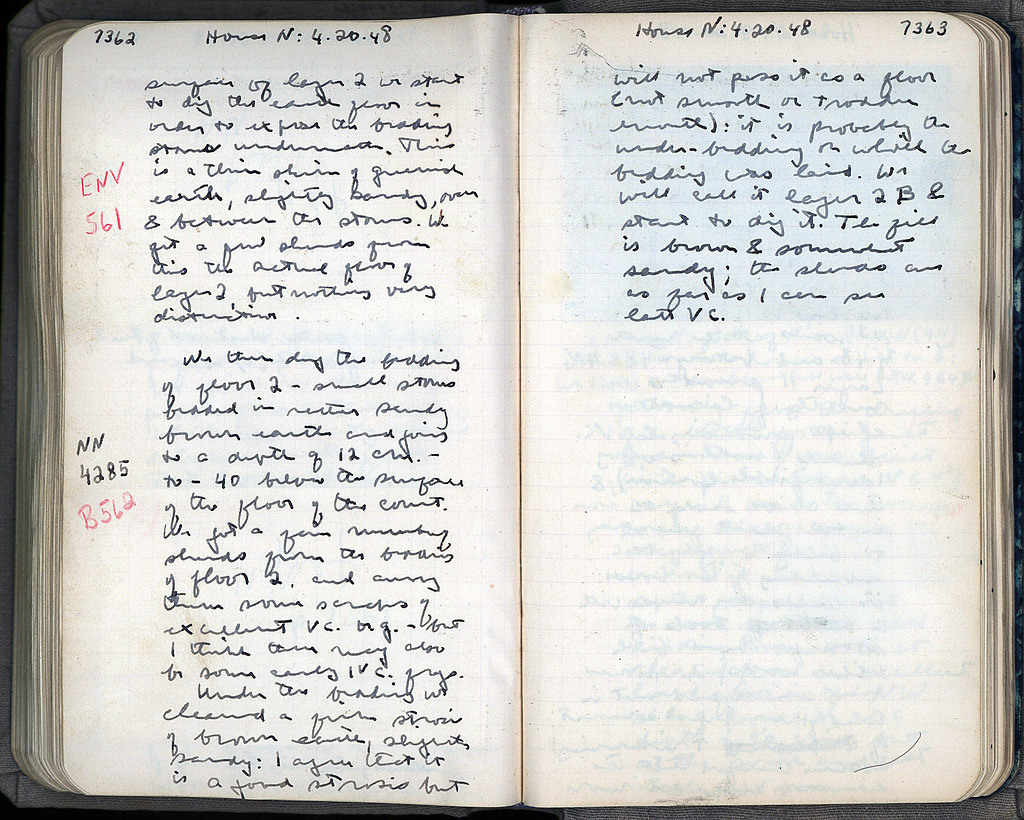 7362 House N: 4.20.48
surface of layer 2 we start
to dig the earth floor in
order to expose the bedding
stones underneath. This
is a thin skin of greenish
earth, slightly sandy, over
& between the stones. We
get a few sherds from
this the actual floor of
layer 2, but nothing very
distinctive.
ENV
561
We then dug the bedding
of floor 2 - small stones
bedded in rather sandy
brown earth and going
to a depth of 12 cm. -
to - 40 below the surface
of the floor of the court.
We got a fair number of
sherds from the bedding
of floor 2, and among
them some scraps of
excellent VC. bg. - but
I think there may also
be some early IVC. frgs.
NN
4285
B562
Under the bedding we
cleaned a firm strosis
of brown earth, slightly
sandy: I agree that it
is a good strosis but
House N: 4.20.48 7363
will not pass it as a floor
(not smooth or trodden
enough): it is probably the
under-bedding on which the
bedding was laid. We
will call it layer 2B &
start to dig it. The fill
is brown & somewhat
sandy; the sherds are
as far as I can see
late VC.